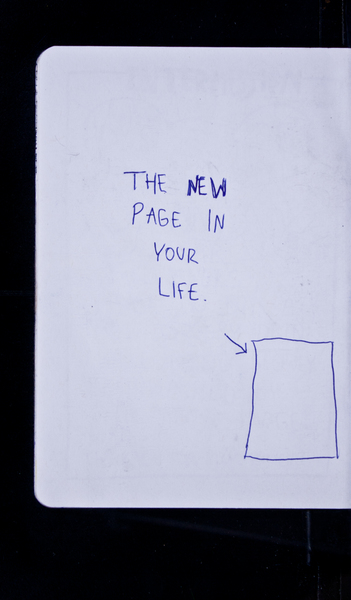 THE NEW
PAGE IN
YOUR
LIFE.